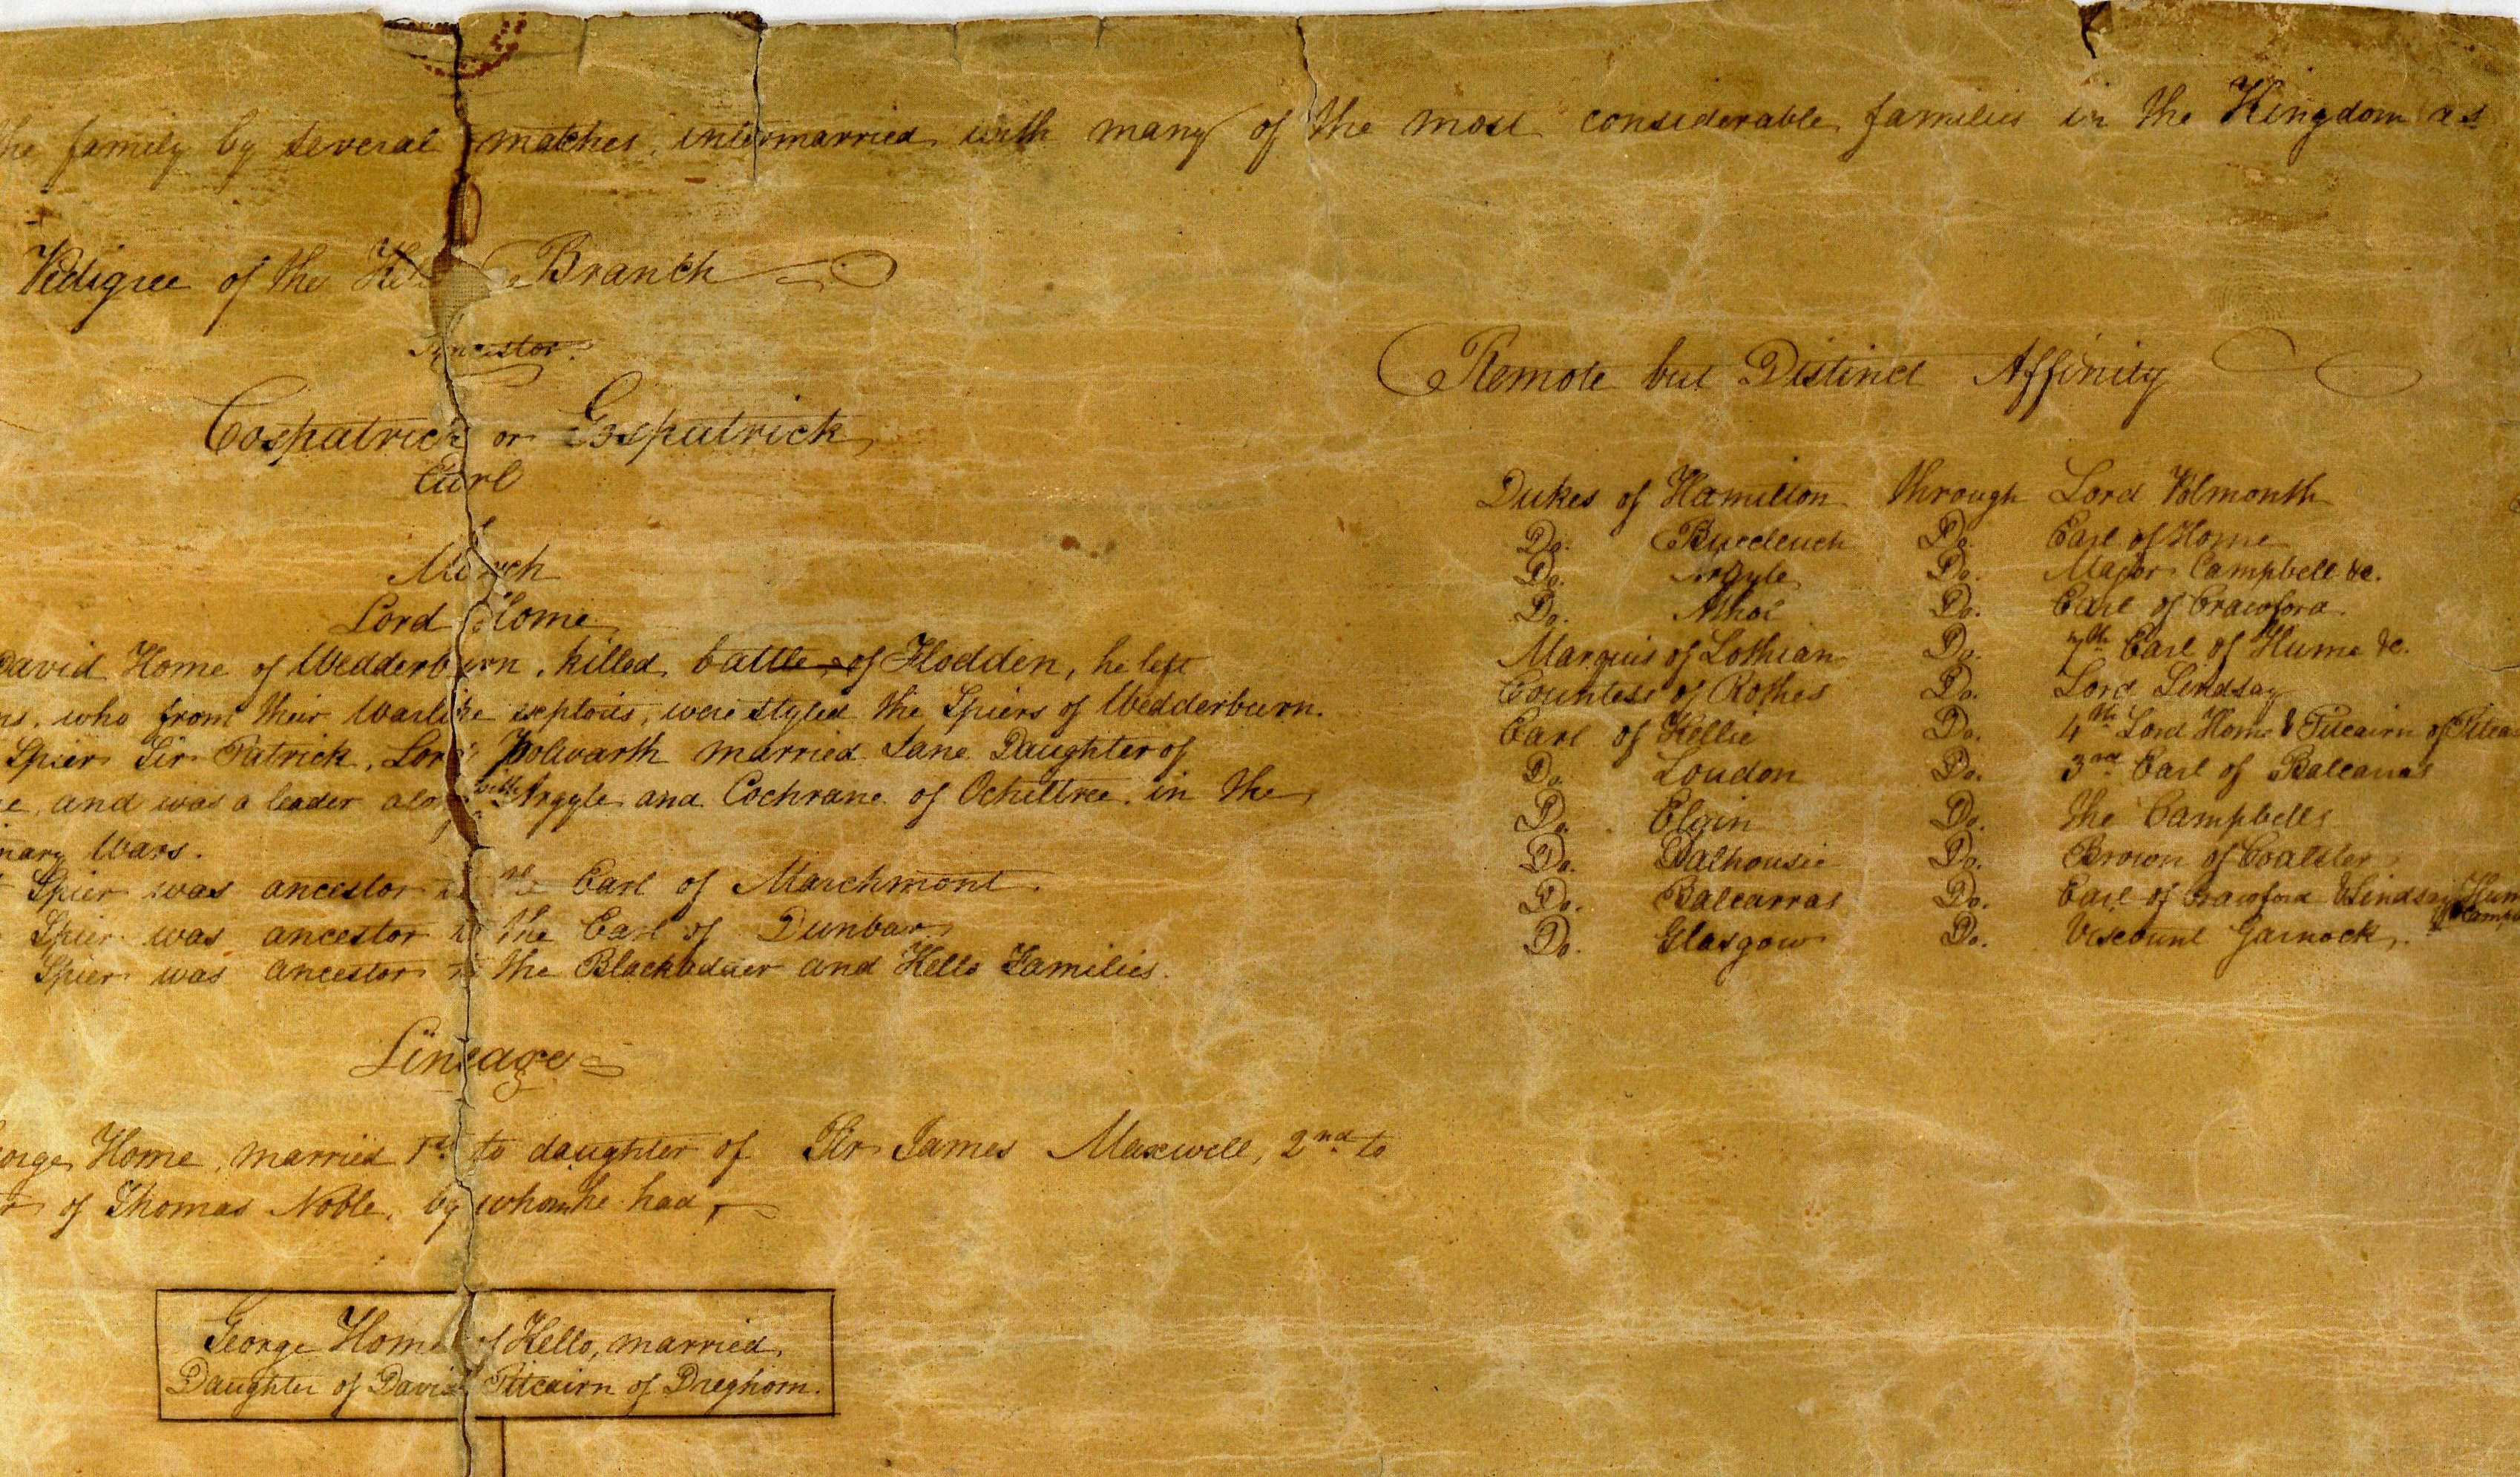 the family by several matches, intermarried with many of the most considerable families in the Kingdom as
Pedigree of the Branch
Ancestor.
Cospatrick or Gospatrick,
Earl
March
Lord Home
David Home of Wedderburn, killed battle of Flodden, he left
who from their warlike exploits, were styled the Spiers of Wedderburn.
Spier Sir Patrick, Lord Polwarth married Jane Daughter of
and was a leader along with Argyle and Cochrane of Ochiltree in the
Wars.
Spier was ancestor to the Earl of Marchmont.
Spier was ancestor to the Earl of Dunbar
Spier was ancestor to the Blackadder and Kello Families.
Lineage
Home, married 1st to daughter of Sir James Maxwell, 2nd to
of Thomas Noble, by whom he had,
George Home of Kello, married
Daughter of David Pitcairn of Dreghorn.
Remote but Distinct Affinity
Dukes of Hamilton through Lord Polmonth
Do. Buccleuch Do. Earl of Home
Do. Argyle Do. Major Campbell &c.
Do. Athol Do. Earl of Crawford
Marquis of Lothian Do. 7th Earl of Hume &c.
Countess of Rothes Do. Lord Lindsay
Earl of Kellie Do. 4th Lord Home & Pitcairn of
Do. Loudon Do. 3rd Earl of Balcarras
Do. Elgin Do. the Campbells
Do. Dalhousie Do. Brown of Coalster
Do. Balcarras Do. Earl of Crawford & Lindsay
Do. Glasgow Do. Viscount Garnock,